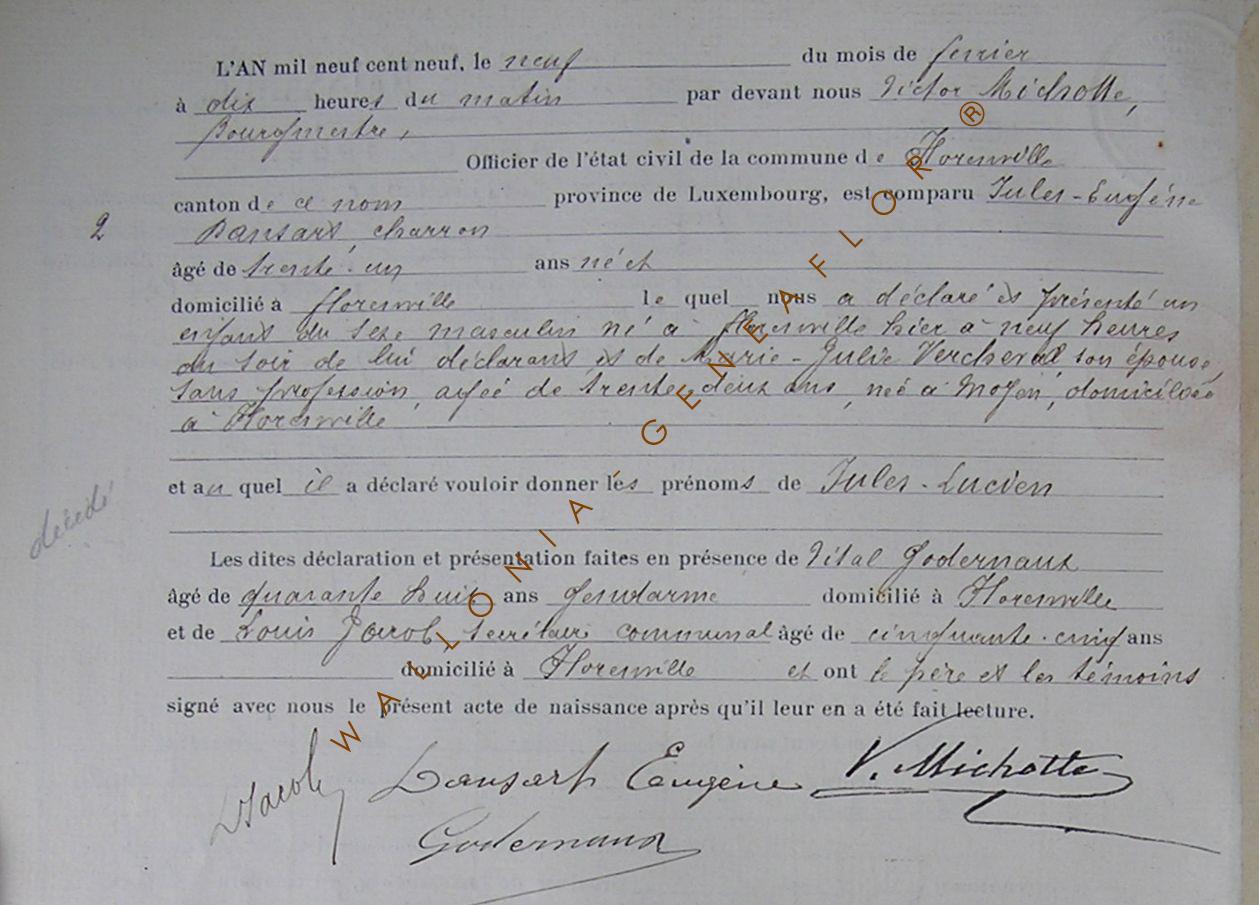 L'AN mil neuf cent neuf, le neuf du mois de fevrier
à dix heures du matin par devant nous Victor Michotte,
Bourgmestre,
Officier de l'état civil de la commune de Florenville
canton de ce nom province de Luxembourg, est comparu Jules-Eugéne
2 Dansart, charron
âgé de trente-un ans né et
domicilié à Florenville lequel nous a déclaré et présenté un
enfant du sexe masculin né à Florenville hier à neuf heures
du soir de lui déclarant et de Marie-Julie Vercheval son épouse,
sans profession, agée de trente-deux ans, née à Moyen, domiciliée
à Florenville
et au quel il a déclaré vouloir donner les prénoms de Jules-Lucien
décédé
Les dites déclaration et présentation faites en présence de Vital Godernaux
âgé de quarante huit ans Gendarme domicilié à Florenville
et de Louis Jacob secrétaire communal âgé de cinquante-cinq ans
domicilié à Florenville et ont le père et les témoins
signé avec nous le présent acte de naissance après qu'il leur en a été fait lecture.
LJacob Dansart Eugène V. Michotte
Godernaux
WALLONIA GENEAFLOR®